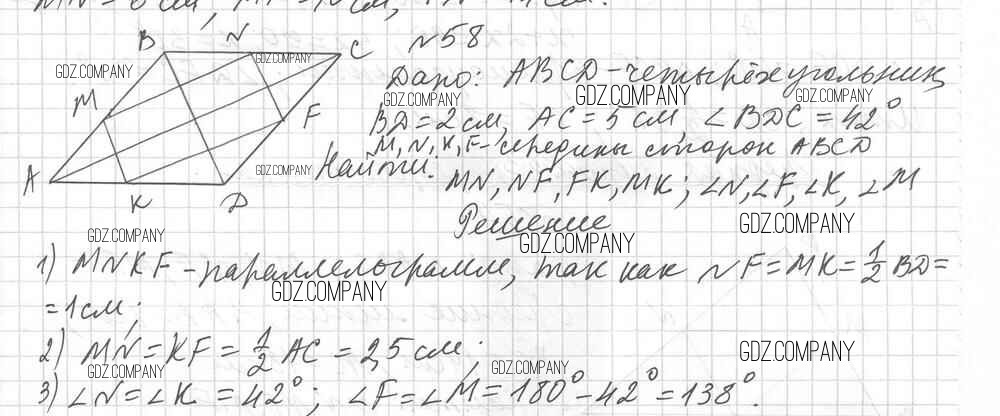 MN = 6 см, MF = 10 см,
N58
B N C
M F
A K D
Дано: ABCD - четырёхугольник
BD = 2 см, AC = 5 см, ∠BDC = 42°
M, N, K, F - середины сторон ABCD
Найти: MN, NF, FK, MK; ∠N, ∠F, ∠K, ∠M
Решение
1) MNKF - параллелограмм, так как NF = MK = 1/2 BD =
= 1 см;
2) MN = KF = 1/2 AC = 2,5 см;
3) ∠N = ∠K = 42°; ∠F = ∠M = 180° - 42° = 138°.
GDZ.COMPANY
GDZ.COMPANY
GDZ.COMPANY
GDZ.COMPANY
GDZ.COMPANY
GDZ.COMPANY
GDZ.COMPANY
GDZ.COMPANY
GDZ.COMPANY
GDZ.COMPANY
GDZ.COMPANY
GDZ.COMPANY
GDZ.COMPANY
GDZ.COMPANY